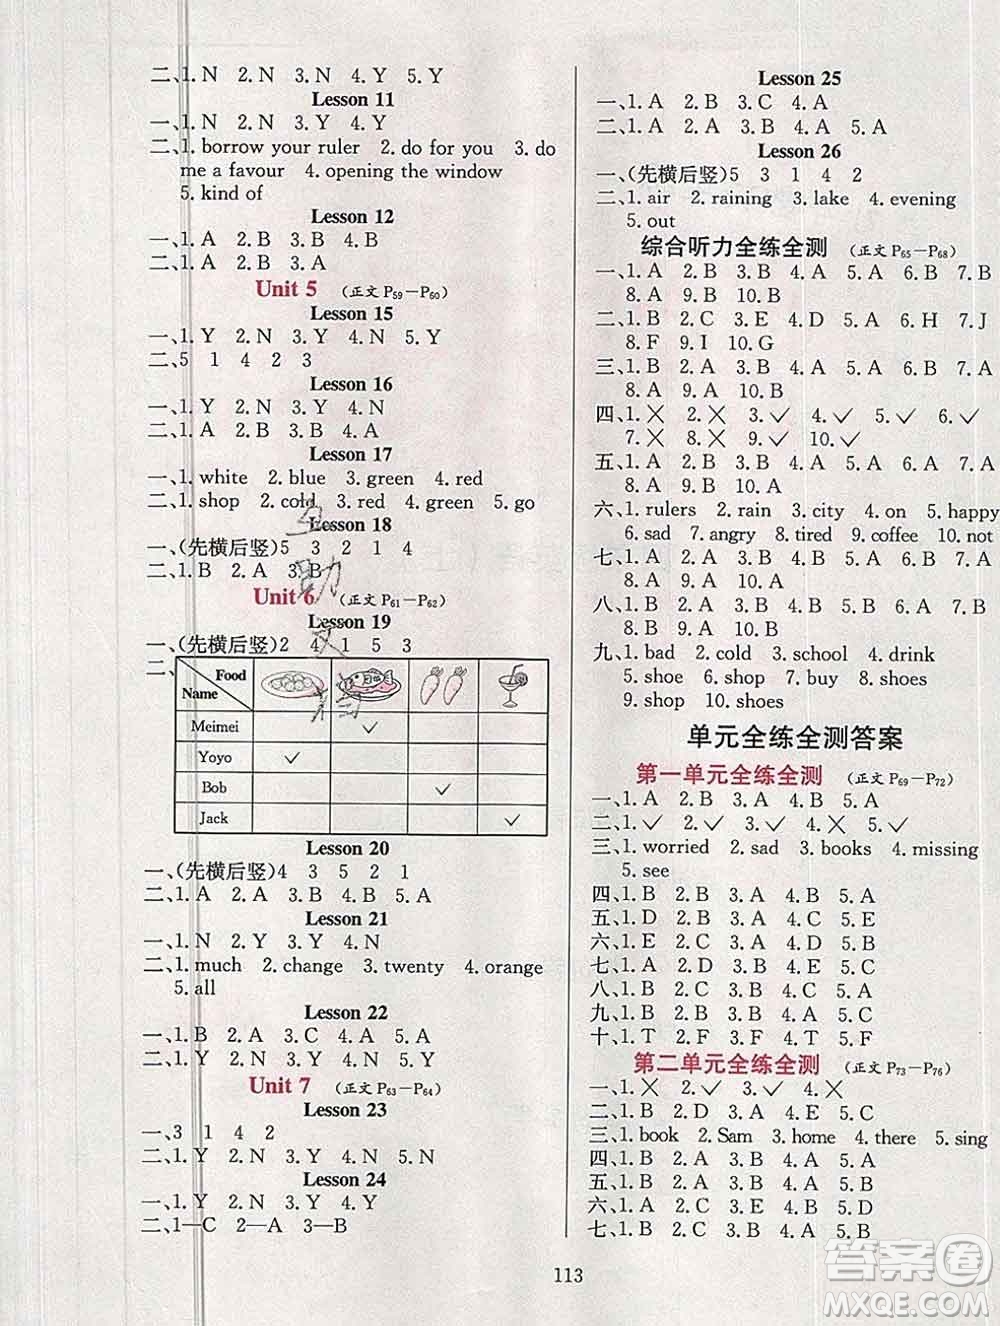 二、1. N 2. N 3. N 4. Y 5. Y
Lesson 11
一、1. N 2. N 3. Y 4. Y
二、1. borrow your ruler 2. do for you 3. do
me a favour 4. opening the window
5. kind of
Lesson 12
一、1. A 2. B 3. B 4. B
二、1. B 2. B 3. A
Unit 5 (正文 P59—P60)
Lesson 15
一、1. Y 2. N 3. Y 4. N 5. Y
二、5 1 4 2 3
Lesson 16
一、1. Y 2. N 3. Y 4. N
二、1. A 2. B 3. B
Lesson 17
一、1. white 2. blue 3. green 4. red
二、1. shop 2. cold 3. red 4. green 5. go
Lesson 18
一、(先横后竖)5 3 2 1 4
二、1. B 2. A 3. B
Unit 6 (正文 P61—P62)
Lesson 19
一、(先横后竖)2 4 1 5 3
二、
Food
Name
Meimei ✓
Yoyo ✓
Bob ✓
Jack ✓
Lesson 20
一、(先横后竖)4 3 5 2 1
二、1. A 2. A 3. B 4. B 5. A
Lesson 21
一、1. N 2. Y 3. Y 4. N
二、1. much 2. change 3. twenty 4. orange
5. all
Lesson 22
一、1. B 2. A 3. C 4. A 5. A
二、1. Y 2. N 3. Y 4. N 5. N
Unit 7 (正文 P63—P64)
Lesson 23
一、3 1 4 2
二、1. Y 2. N 3. N 4. Y 5. Y
Lesson 24
一、1. Y 2. N 3. Y 4. Y
二、1—C 2—A 3—B
Lesson 25
一、1. A 2. B 3. C 4. A
二、1. A 2. A 3. B 4. A 5. A
Lesson 26
一、(先横后竖)5 3 1 4 2
二、1. air 2. raining 3. lake 4. evening
5. out
综合听力全练全测 (正文 P65—P68)
一、1. A 2. B 3. B 4. A 5. A 6. B 7. B
8. A 9. B 10. B
二、1. B 2. C 3. E 4. D 5. A 6. H 7. J
8. F 9. I 10. G
三、1. B 2. A 3. B 4. A 5. A 6. B 7. A
8. A 9. A 10. B
四、1. ✕ 2. ✕ 3. ✓ 4. ✓ 5. ✓ 6. ✓
7. ✕ 8. ✕ 9. ✓ 10. ✓
五、1. A 2. B 3. A 4. B 5. A 6. B 7. A
8. A 9. B 10. B
六、1. rulers 2. rain 3. city 4. on 5. happy
6. sad 7. angry 8. tired 9. coffee 10. not
七、1. B 2. A 3. B 4. A 5. B 6. B 7. A
8. A 9. B 10. A
八、1. B 2. A 3. B 4. A 5. B 6. A 7. B
8. B 9. A 10. B
九、1. bad 2. cold 3. school 4. drink
5. shoe 6. shop 7. buy 8. shoes
9. shop 10. shoes
单元全练全测答案
第一单元全练全测 (正文 P69—P72)
一、1. A 2. B 3. A 4. B 5. A
二、1. ✓ 2. ✓ 3. ✓ 4. ✕ 5. ✓
三、1. worried 2. sad 3. books 4. missing
5. see
四、1. B 2. B 3. A 4. B 5. A
五、1. D 2. B 3. A 4. C 5. E
六、1. E 2. C 3. B 4. D 5. A
七、1. A 2. D 3. B 4. C 5. E
八、1. B 2. A 3. B 4. B 5. A
九、1. B 2. B 3. A 4. A 5. B
十、1. T 2. F 3. F 4. T 5. F
第二单元全练全测 (正文 P73—P76)
一、1. ✕ 2. ✓ 3. ✓ 4. ✕
二、1. B 2. D 3. E 4. C 5. A
三、1. book 2. Sam 3. home 4. there 5. sing
四、1. B 2. A 3. B 4. A 5. B
五、1. B 2. A 3. B 4. A 5. B
六、1. A 2. C 3. E 4. B 5. D
七、1. B 2. C 3. B 4. A 5. B
113
答案圈
MXQE.COM